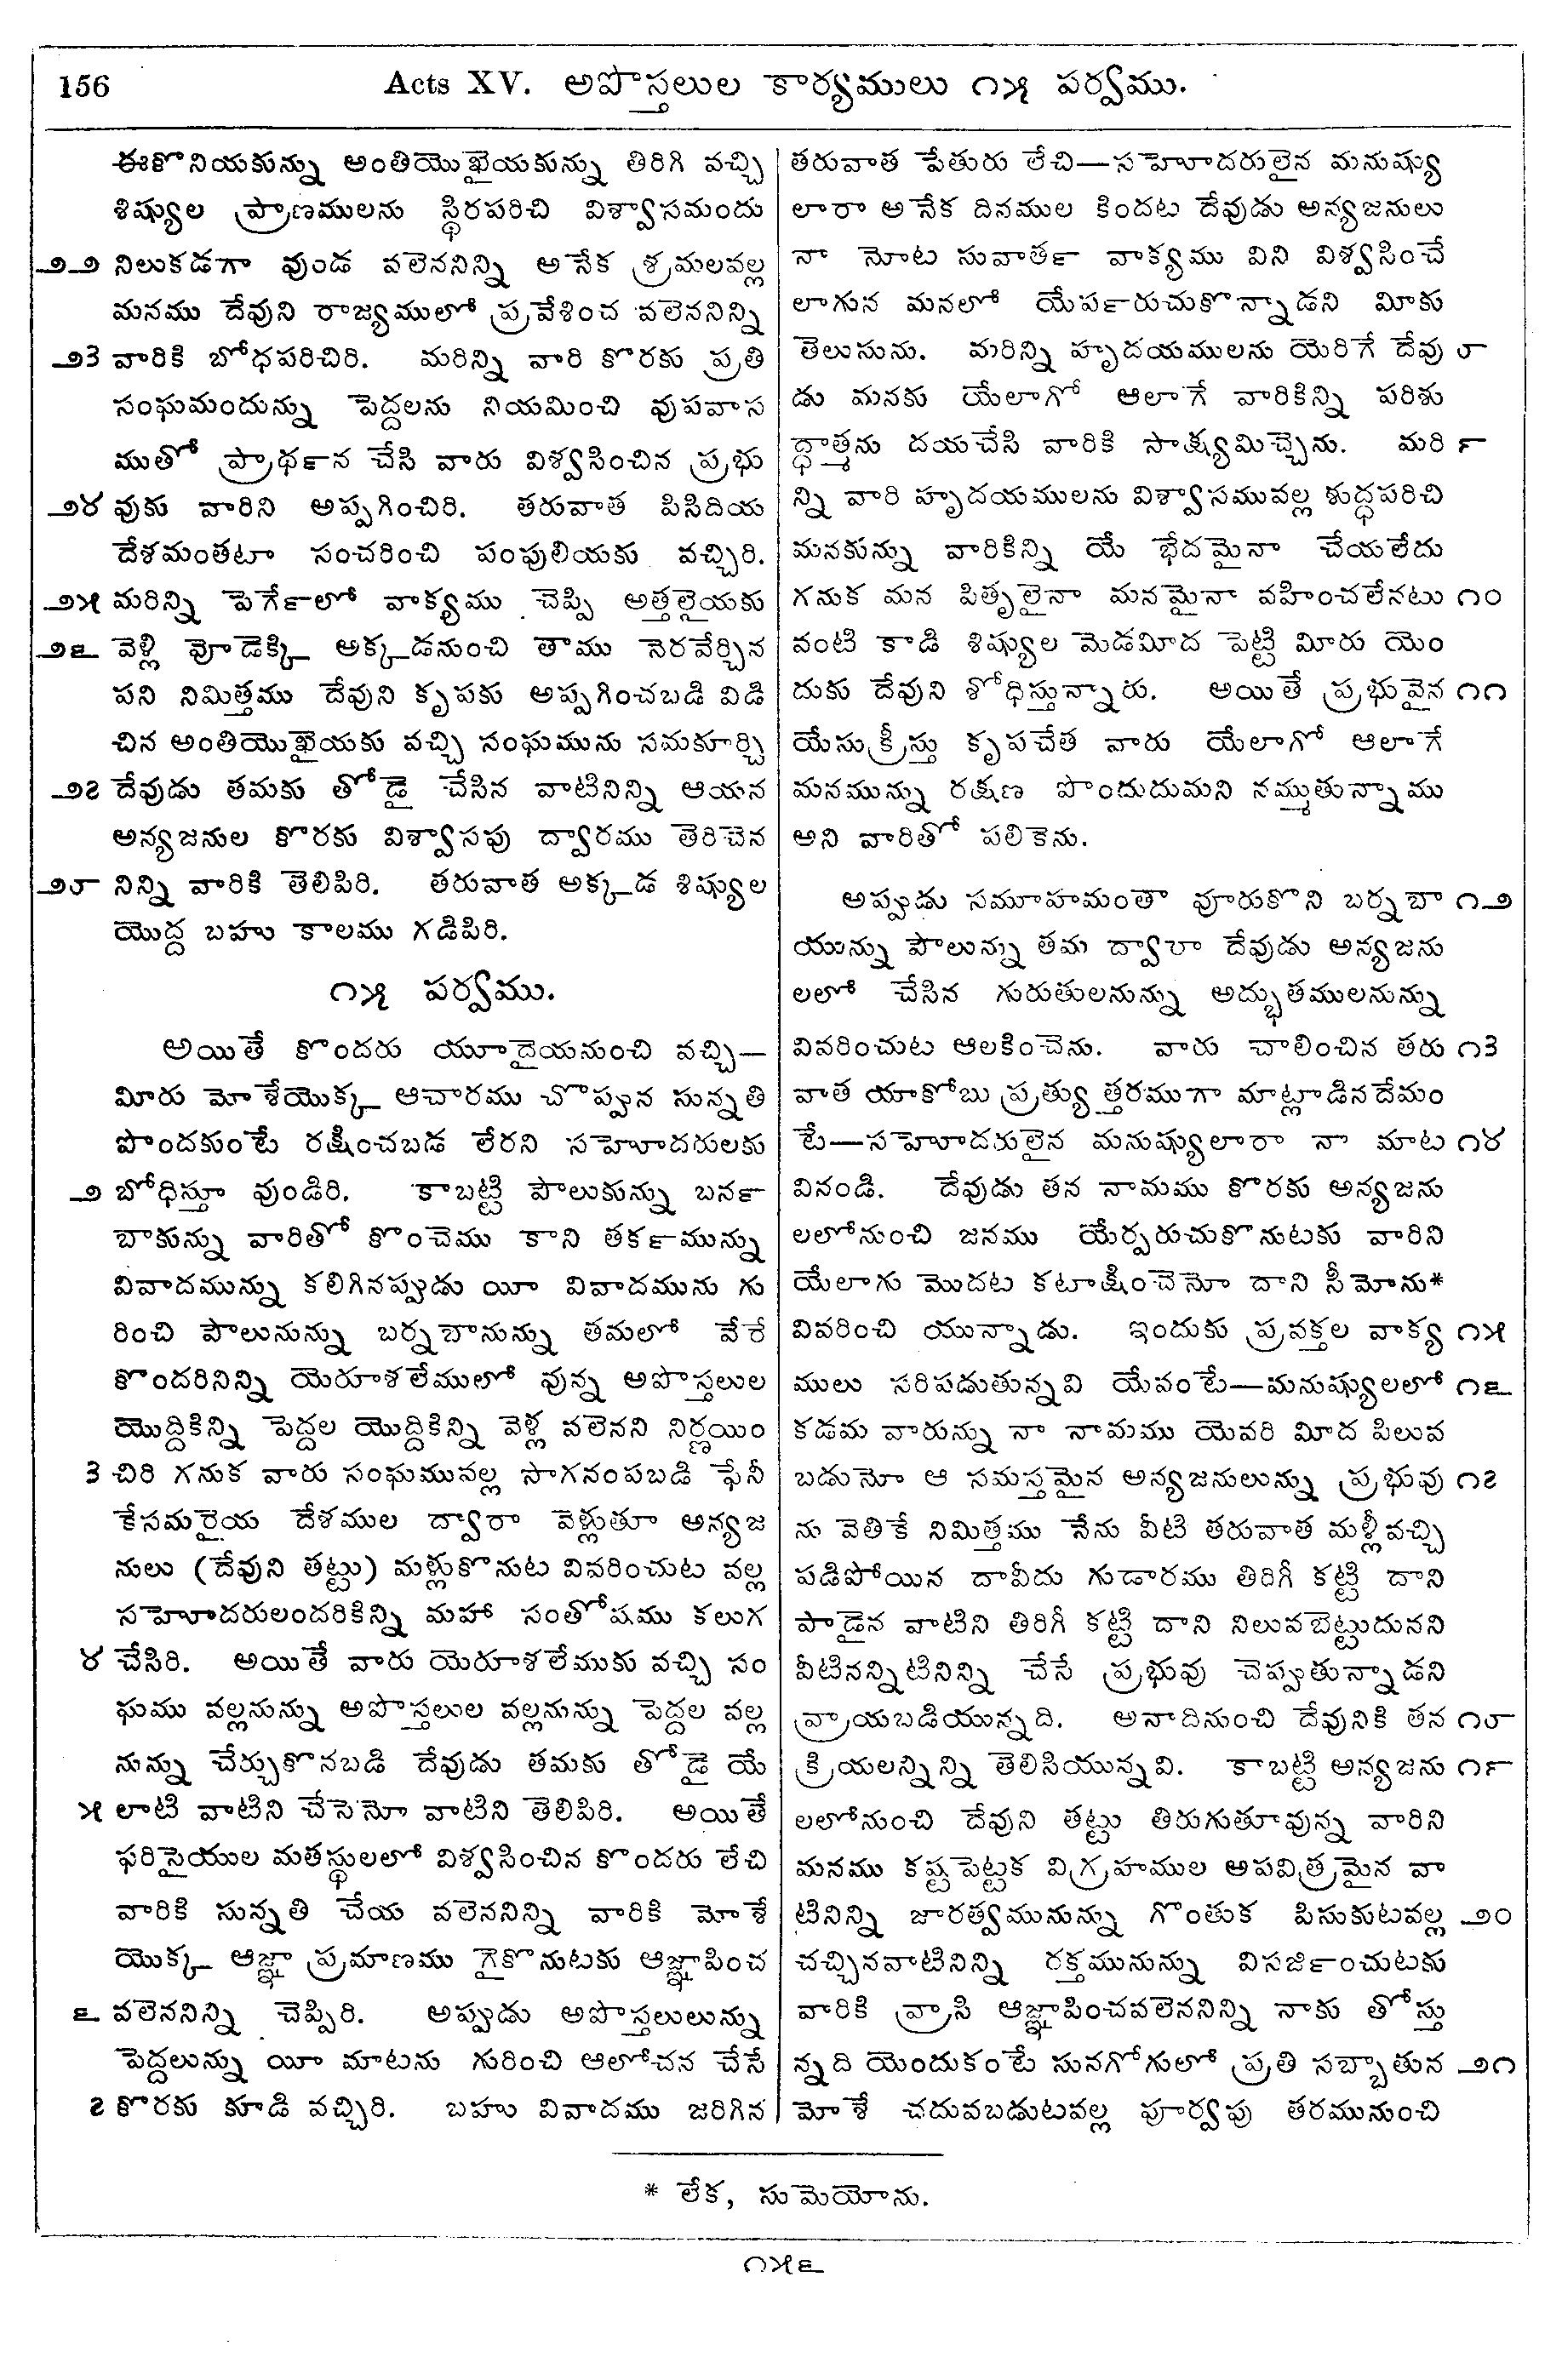 156 Acts XV. అపొస్తలుల కార్యములు ౧౫ పర్వము.
ఈకొనియకున్ను అంతియొఖైయకున్ను తిరిగి వచ్చి
శిష్యుల ప్రాణములను స్థిరపరిచి విశ్వాసమందు
౨౨ నిలుకడగా వుండ వలెననిన్ని అనేక శ్రమలవల్ల
మనము దేవుని రాజ్యములో ప్రవేశించ వలెననిన్ని
౨౩ వారికి బోధపరిచిరి. మరిన్ని వారి కొరకు ప్రతి
సంఘమందున్ను పెద్దలను నియమించి వుపవాస
ముతో ప్రాథ౯న చేసి వారు విశ్వసించిన ప్రభు
౨౪ వుకు వారిని అప్పగించిరి. తరువాత పిసిదియ
దేశమంతటా సంచరించి పంపులియకు వచ్చిరి.
౨౫ మరిన్ని పెగే౯లో వాక్యము చెప్పి అత్తలైయకు
౨౬ వెళ్లి వోడెక్కి అక్కడనుంచి తాము నెరవేర్చిన
పని నిమిత్తము దేవుని కృపకు అప్పగించబడి విడి
చిన అంతియొఖైయకు వచ్చి సంఘమును సమకూర్చి
౨౭ దేవుడు తమకు తోడై చేసిన వాటినిన్ని ఆయన
అన్యజనుల కొరకు విశ్వాసపు ద్వారము తెరిచెన
౨౮ నిన్ని వారికి తెలిపిరి. తరువాత అక్కడ శిష్యుల
యొద్ద బహు కాలము గడిపిరి.
౧౫ పర్వము.
అయితే కొందరు యూదైయనుంచి వచ్చి—
మీరు మోశేయొక్క ఆచారము చొప్పున సున్నతి
పొందకుంటే రక్షించబడ లేరని సహోదరులకు
౨ బోధిస్తూ వుండిరి. కాబట్టి పౌలుకున్ను బన౯
బాకున్ను వారితో కొంచెము కాని తక౯మున్ను
వివాదమున్ను కలిగినప్పుడు యీ వివాదమును గు
రించి పౌలునున్ను బర్నబానున్ను తమలో వేరే
కొందరినిన్ని యెరూశలేములో వున్న అపొస్తలుల
యొద్దికిన్ని పెద్దల యొద్దికిన్ని వెళ్ల వలెనని నిర్ణయిం
౩ చిరి గనుక వారు సంఘమువల్ల సాగనంపబడి ఫేనీ
కేసమరైయ దేశముల ద్వారా వెళ్లుతూ అన్యజ
నులు (దేవుని తట్టు) మళ్లుకొనుట వివరించుట వల్ల
సహోదరులందరికిన్ని మహా సంతోషము కలుగ
౪ చేసిరి. అయితే వారు యెరూశలేముకు వచ్చి సం
ఘము వల్లనున్ను అపొస్తలుల వల్లనున్ను పెద్దల వల్ల
నున్ను చేర్చుకొనబడి దేవుడు తమకు తోడై యే
౫ లాటి వాటిని చేసెనో వాటిని తెలిపిరి. అయితే
ఫరిసైయుల మతస్థులలో విశ్వసించిన కొందరు లేచి
వారికి సున్నతి చేయ వలెననిన్ని వారికి మోశే
యొక్క ఆజ్ఞా ప్రమాణము గైకొనుటకు ఆజ్ఞాపించ
౬ వలెననిన్ని చెప్పిరి. అప్పుడు అపొస్తలులున్ను
పెద్దలున్ను యీ మాటను గురించి ఆలోచన చేసే
౭ కొరకు కూడి వచ్చిరి. బహు వివాదము జరిగిన
తరువాత పేతురు లేచి—సహోదరులైన మనుష్యు
లారా అనేక దినముల కిందట దేవుడు అన్యజనులు
నా నోట సువాత౯ వాక్యము విని విశ్వసించే
లాగున మనలో యేప౯రుచుకొన్నాడని మీకు
తెలుసును. మరిన్ని హృదయములను యెరిగే దేవు ౮
డు మనకు యేలాగో ఆలాగే వారికిన్ని పరిశు
ద్ధాత్మను దయచేసి వారికి సాక్ష్యమిచ్చెను. మరి ౯
న్ని వారి హృదయములను విశ్వాసమువల్ల శుద్ధపరిచి
మనకున్ను వారికిన్ని యే భేదమైనా చేయలేదు
గనుక మన పితృలైనా మనమైనా వహించలేనటు ౧౦
వంటి కాడి శిష్యుల మెడమీద పెట్టి మీరు యెం
దుకు దేవుని శోధిస్తున్నారు. అయితే ప్రభువైన ౧౧
యేసుక్రీస్తు కృపచేత వారు యేలాగో ఆలాగే
మనమున్ను రక్షణ పొందుదుమని నమ్ముతున్నాము
అని వారితో పలికెను.
అప్పుడు సమూహమంతా వూరుకొని బర్నబా ౧౨
యున్ను పౌలున్ను తమ ద్వారా దేవుడు అన్యజను
లలో చేసిన గురుతులనున్ను అద్భుతములనున్ను
వివరించుట ఆలకించెను. వారు చాలించిన తరు ౧౩
వాత యాకోబు ప్రత్యుత్తరముగా మాట్లాడినదేమం
టే—సహోదరులైన మనుష్యులారా నా మాట ౧౪
వినండి. దేవుడు తన నామము కొరకు అన్యజను
లలోనుంచి జనము యేర్పరుచుకొనుటకు వారిని
యేలాగు మొదట కటాక్షించెనో దాని సీమోను*
వివరించి యున్నాడు. ఇందుకు ప్రవక్తల వాక్య ౧౫
ములు సరిపడుతున్నవి యేవంటే—మనుష్యులలో ౧౬
కడమ వారున్ను నా నామము యెవరి మీద పిలువ
బడునో ఆ సమస్తమైన అన్యజనులున్ను ప్రభువు ౧౭
ను వెతికే నిమిత్తము నేను వీటి తరువాత మళ్లీవచ్చి
పడిపోయిన దావీదు గుడారము తిరిగీ కట్టి దాని
పాడైన వాటిని తిరిగీ కట్టి దాని నిలువబెట్టుదునని
వీటినన్నిటినిన్ని చేసే ప్రభువు చెప్పుతున్నాడని
వ్రాయబడియున్నది. అనాదినుంచి దేవునికి తన ౧౮
క్రియలన్నిన్ని తెలిసియున్నవి. కాబట్టి అన్యజను ౧౯
లలోనుంచి దేవుని తట్టు తిరుగుతూవున్న వారిని
మనము కష్టపెట్టక విగ్రహముల అపవిత్రమైన వా
టినిన్ని జారత్వమునున్ను గొంతుక పిసుకుటవల్ల ౨౦
చచ్చినవాటినిన్ని రక్తమునున్ను విసజి౯ంచుటకు
వారికి వ్రాసి ఆజ్ఞాపించవలెననిన్ని నాకు తోస్తు
న్నది యెందుకంటే సునగోగులో ప్రతి సబ్బాతున ౨౧
మోశే చదువబడుటవల్ల పూర్వపు తరమునుంచి
* లేక, సుమెయోను.
౧౫౬